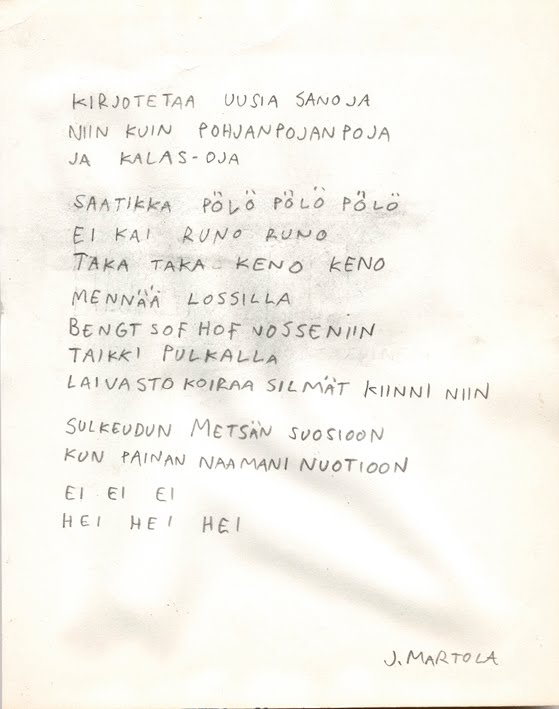 KIRJOTETAA UUSIA SANOJA
NIIN KUIN POHJANPOJANPOJA
JA KALAS-OJA
SAATIKKA PÖLÖ PÖLÖ PÖLÖ
EI KAI RUNO RUNO
TAKA TAKA KENO KENO
MENNÄÄ LOSSILLA
BENGT SOF HOF NOSSENIIN
TAIKKI PULKALLA
LAIVASTO KOIRAA SILMÄT KIINNI NIIN
SULKEUDUN METSÄN SUOSIOON
KUN PAINAN NAAMANI NUOTIOON
EI EI EI
HEI HEI HEI
J. MARTOLA